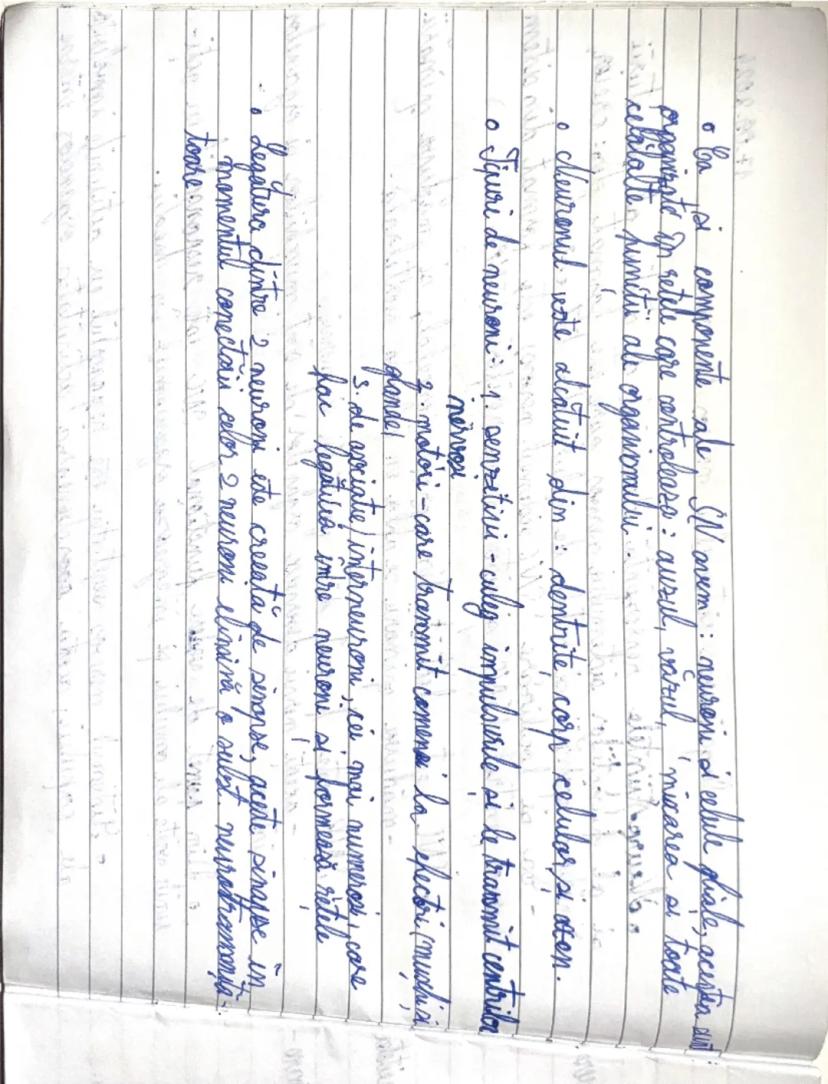 • Ca si componente ale SN avem: neuroni si celule gliale, acestia sunt
organizate în retele care controleaza: auzul, văzul, miscarea si toate
celălalte funcții ale organismului.
• Neuronul este alcatuit din: dentrite, corp celular si axon.
• Tipuri de neuroni: 1. senzitivi - culeg impulsurile si le transmit centrilor
nervosi
2. motori - care transmit comenzi la efectori (muschi si
glande)
3. de asociatie/interneuroni, cei mai numerosi, care
fac legătură între neuroni si formează rețele
• Legătura dintre 2 neuroni este creeată de sinapse, aceste sinapse în
momentul conectării celor 2 neuroni elimină o subst. neurotransmiță-
toare.